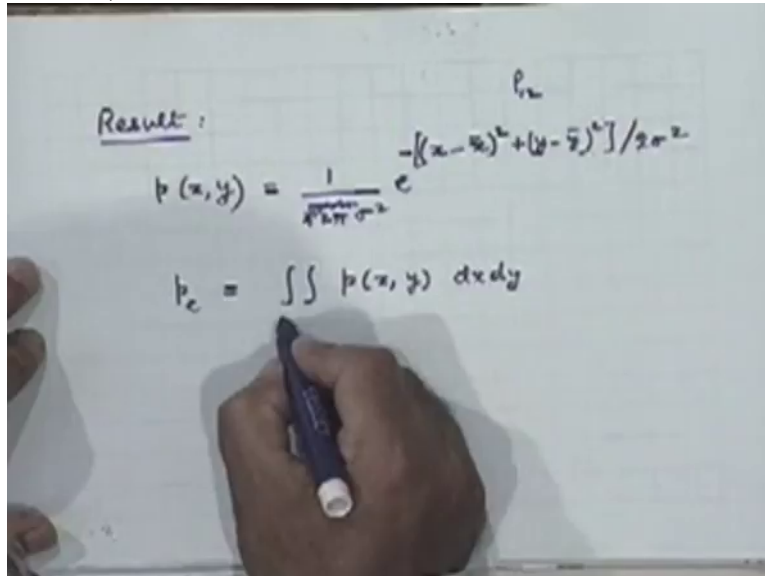 P₁₂
Result :
p(x, y) = 1/(2π σ²) e^{-[(x - x̄)² + (y - ȳ)²]/2σ²}
p_e = ∫∫ p(x, y) dx dy